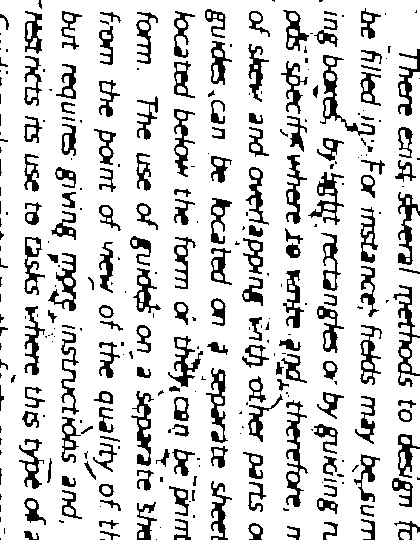 There exist several methods to design fo
be filled in. For instance, fields may be sur
ing boxes, by light rectangles or by guiding ru
ods specify where to write and, therefore, m
of skew and overlapping with other parts o
guides can be located on a separate sheet
located below the form or they can be print
form. The use of guides on a separate she
from the point of view of the quality of th
but requires giving more instructions and,
restricts its use to tasks where this type of a